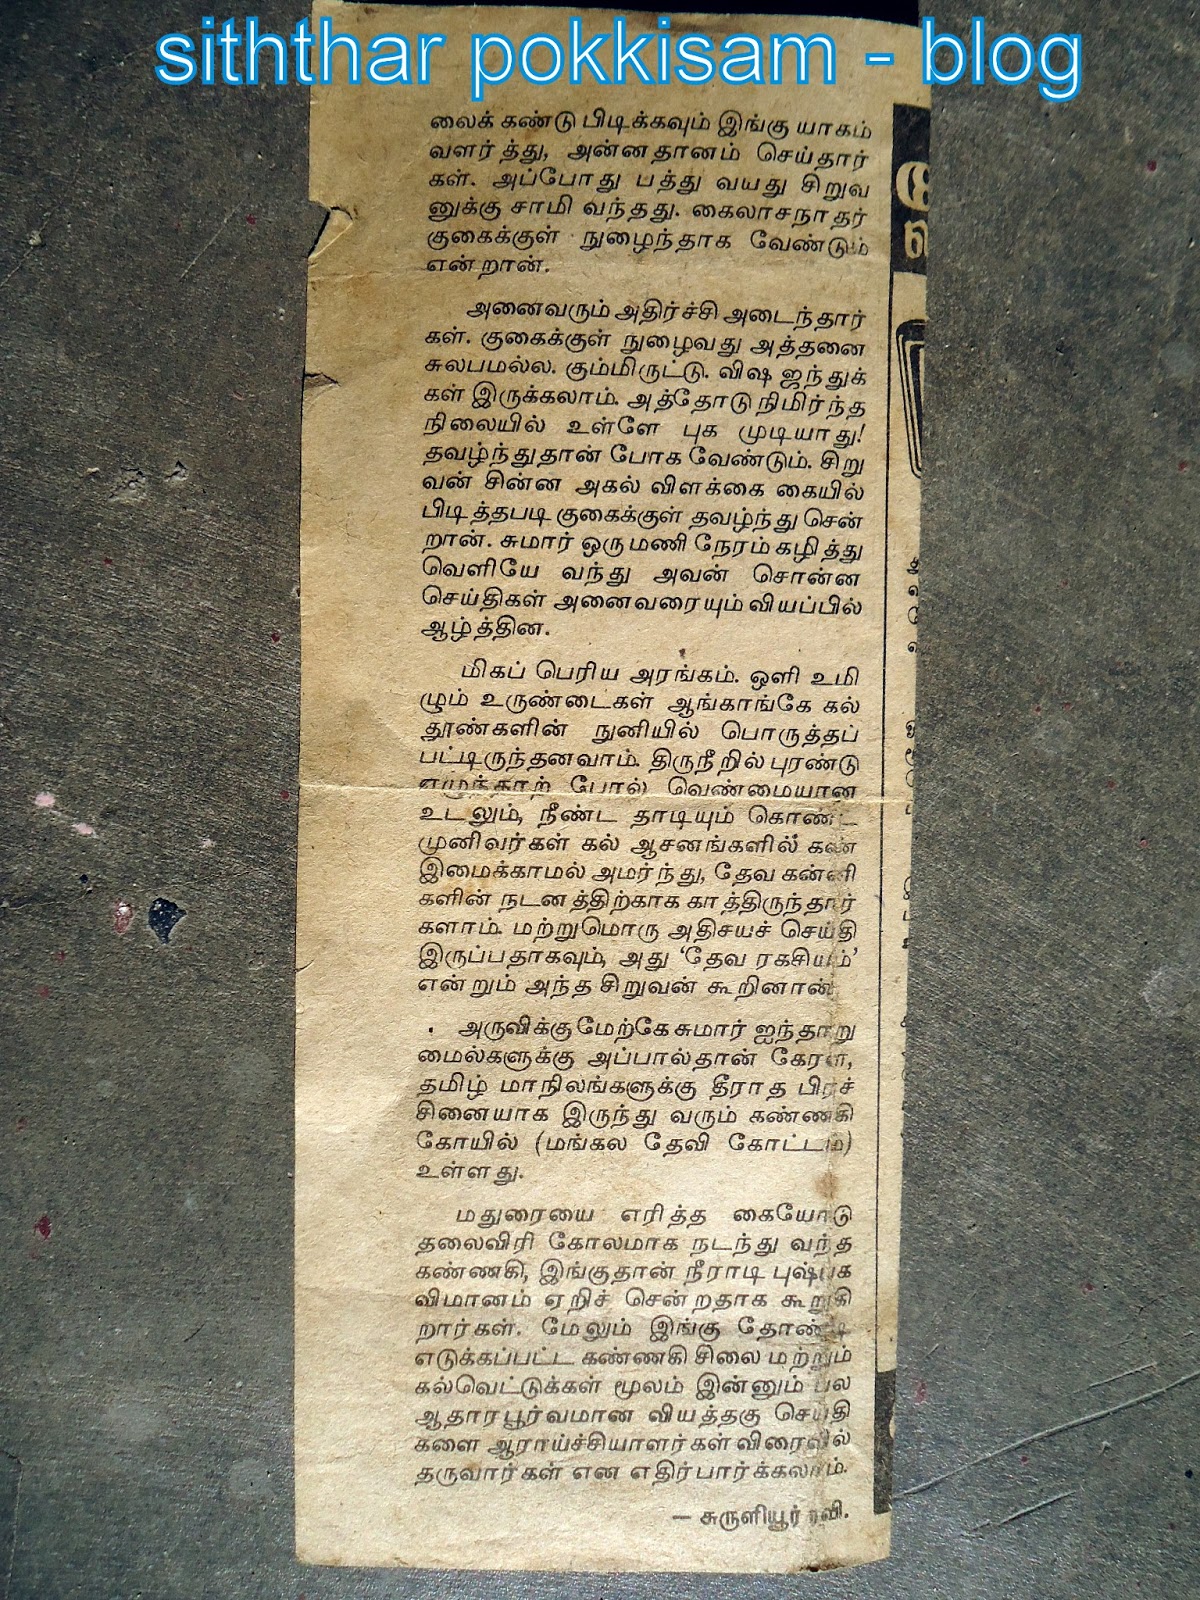 siththar pokkisam - blog
லைக் கண்டு பிடிக்கவும் இங்கு யாகம்
வளர்த்து, அன்னதானம் செய்தார்
கள். அப்போது பத்து வயது சிறுவ
னுக்கு சாமி வந்தது. கைலாசநாதர்
குகைக்குள் நுழைந்தாக வேண்டும்
என்றான்.
அனைவரும் அதிர்ச்சி அடைந்தார்
கள். குகைக்குள் நுழைவது அத்தனை
சுலபமல்ல. கும்மிருட்டு. விஷ ஜந்துக்
கள் இருக்கலாம். அத்தோடு நிமிர்ந்த
நிலையில் உள்ளே புக முடியாது!
தவழ்ந்துதான் போக வேண்டும். சிறு
வன் சின்ன அகல் விளக்கை கையில்
பிடித்தபடி குகைக்குள் தவழ்ந்து சென்
றான். சுமார் ஒரு மணி நேரம் கழித்து
வெளியே வந்து அவன் சொன்ன
செய்திகள் அனைவரையும் வியப்பில்
ஆழ்த்தின.
மிகப் பெரிய அரங்கம். ஒளி உமி
ழும் உருண்டைகள் ஆங்காங்கே கல்
தூண்களின் நுனியில் பொருத்தப்
பட்டிருந்தனவாம். திருநீறில் புரண்டு
எழுந்தாற் போல் வெண்மையான
உடலும், நீண்ட தாடியும் கொண்ட
முனிவர்கள் கல் ஆசனங்களில் கண்
இமைக்காமல் அமர்ந்து, தேவ கன்னி
களின் நடனத்திற்காக காத்திருந்தார்
களாம். மற்றுமொரு அதிசயச் செய்தி
இருப்பதாகவும், அது ‘தேவ ரகசியம்’
என்றும் அந்த சிறுவன் கூறினான்.
அருவிக்கு மேற்கே சுமார் ஐந்தாறு
மைல்களுக்கு அப்பால்தான் கேரள,
தமிழ் மாநிலங்களுக்கு தீராத பிரச்
சினையாக இருந்து வரும் கண்ணகி
கோயில் (மங்கல தேவி கோட்டம்)
உள்ளது.
மதுரையை எரித்த கையோடு
தலைவிரி கோலமாக நடந்து வந்த
கண்ணகி, இங்குதான் நீராடி புஷ்பக
விமானம் ஏறிச் சென்றதாக கூறுகி
றார்கள். மேலும் இங்கு தோண்டி
எடுக்கப்பட்ட கண்ணகி சிலை மற்றும்
கல்வெட்டுக்கள் மூலம் இன்னும் பல
ஆதாரபூர்வமான வியத்தகு செய்தி
களை ஆராய்ச்சியாளர்கள் விரைவில்
தருவார்கள் என எதிர்பார்க்கலாம்.
— சுருளியூர் ரவி.